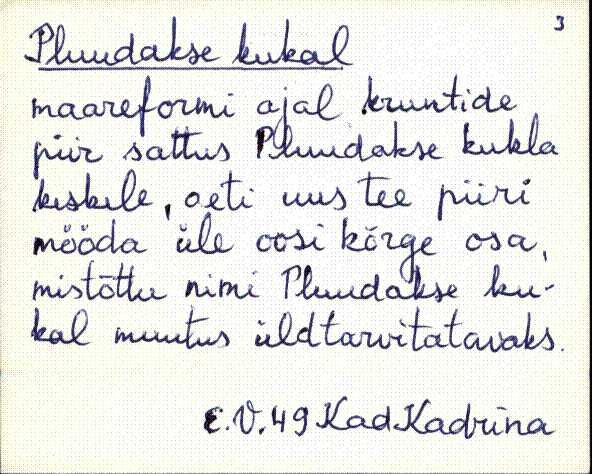 3
Pluudakse kukal
maareformi ajal kruntide
piir sattus Pluudakse kukla
keskele, aeti uus tee piiri
mööda üle oosi kõrge osa,
mistõttu nimi Pluudakse ku-
kal muutus üldtarvitatavaks.
E.V.49 KadKadrina